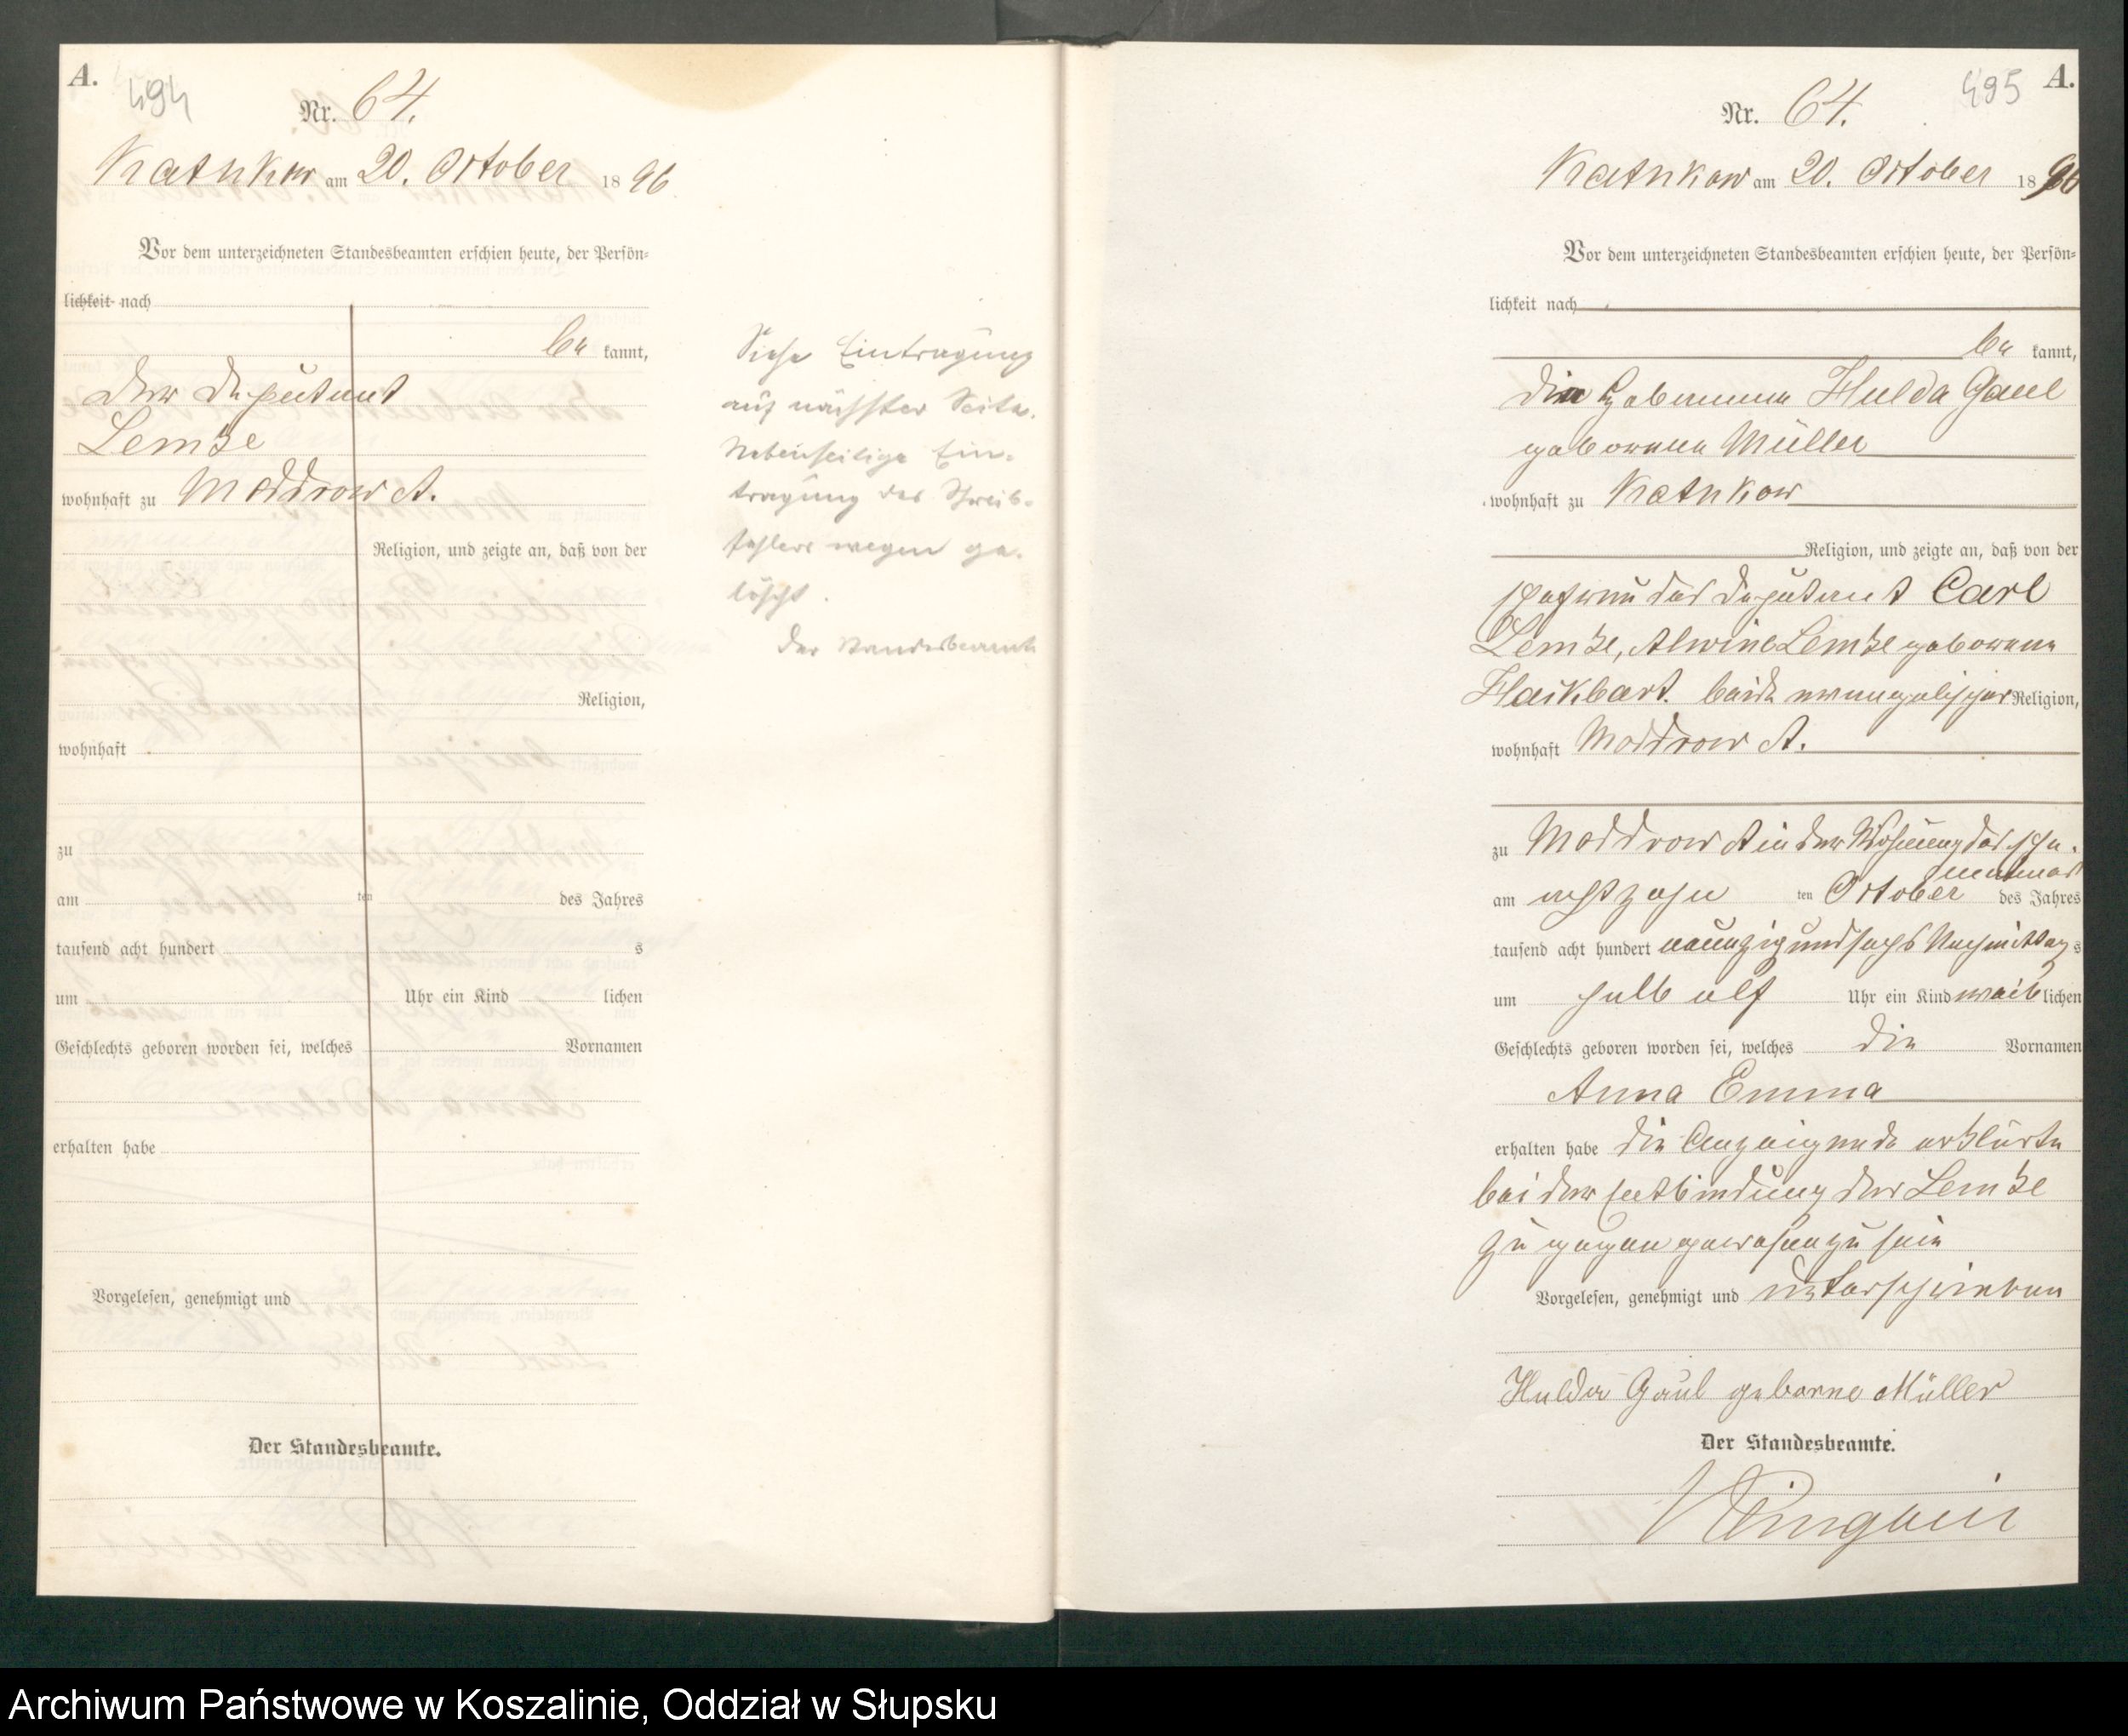 A.
494
Nr. 64.
Katnkow am 20. October 1896
Vor dem unterzeichneten Standesbeamten erschien heute, der Persön-
lichkeit nach
be kannt,
der Deputant
Lemke
wohnhaft zu Moddrow A.
Religion, und zeigte an, daß von der
Religion,
wohnhaft
zu
am ten des Jahres
tausend acht hundert s
um Uhr ein Kind lichen
Geschlechts geboren worden sei, welches Vornamen
erhalten habe
Vorgelesen, genehmigt und
Der Standesbeamte.
Siehe Eintragung
auf nächster Seite.
Nebenseitige Ein-
tragung des Schreib-
fehlers wegen ge-
löscht.
Der Standesbeamte
495
A.
Nr. 64.
Katnkow am 20. October 1896
Vor dem unterzeichneten Standesbeamten erschien heute, der Persön-
lichkeit nach
be kannt,
die Hebamme Hulda Gaul
geborene Müller
wohnhaft zu Katnkow
Religion, und zeigte an, daß von der
Ehefrau des Deputant Carl
Lemke, Alwine Lemke geborene
beide evangelischer Religion,
wohnhaft Moddrow A.
zu Moddrow A in der Wohnung des Ehe-
mannes
am achtzehn ten October des Jahres
tausend acht hundert neunzig und sechs Nachmittag s
um halb elf Uhr ein Kind weib lichen
Geschlechts geboren worden sei, welches die Vornamen
Anna Emma
erhalten habe die Anzeigende erklärte
bei der Entbindung der Lemke
zugegen gewesen zu sein
Vorgelesen, genehmigt und unterschrieben
Hulda Gaul geborne Müller
Der Standesbeamte.
Archiwum Państwowe w Koszalinie, Oddział w Słupsku